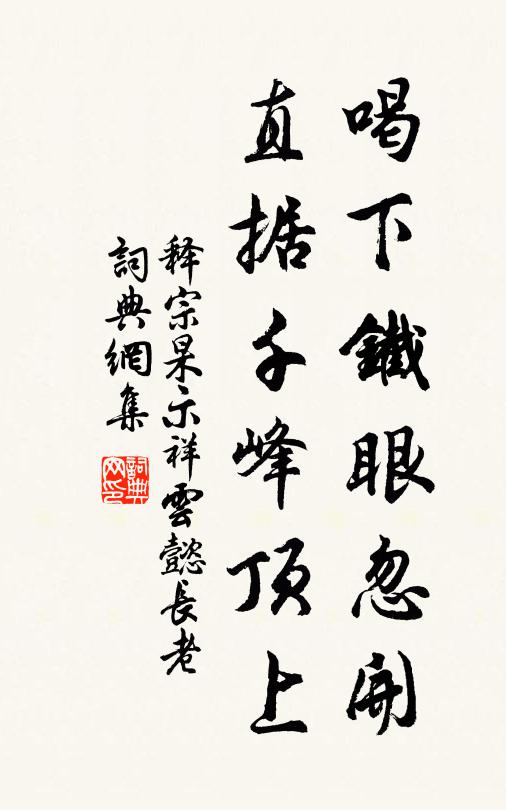 喝下鐵眼忽開
直据千峰頂上
释宗杲示祥雲懿長老
詞典網集
詞典网印